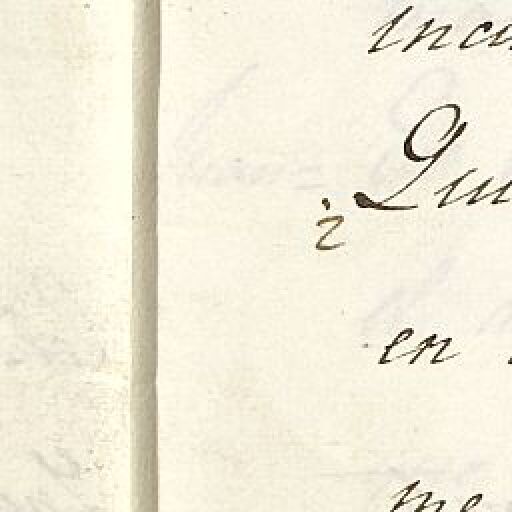 inc
Qui
¿
en
me